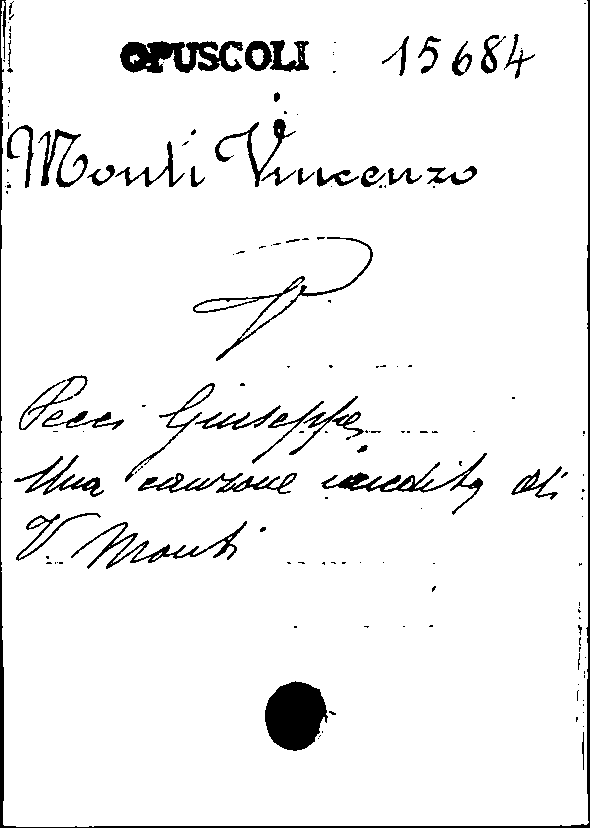 OPUSCOLI 15684
Monti Vincenzo
V
Pecci Giuseppe
Una canzone inedita di
V. Monti